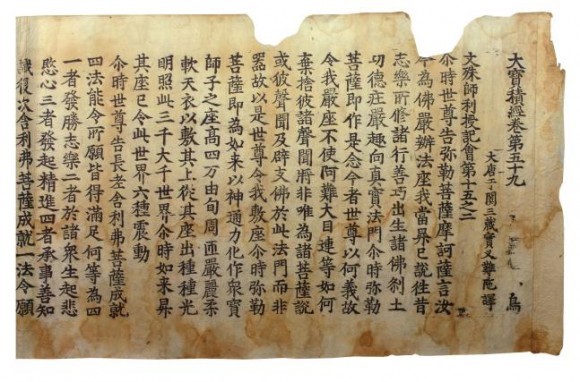 大寶積經卷第五十九 鳥
大唐于闐三藏實叉難陁譯
文殊師利授記會第十五之二
尒時世尊告弥勒菩薩摩訶薩言汝
今為佛嚴辦法座我當昇已說往昔
志樂所修諸行善巧出生諸佛剎土
功德莊嚴趣向真實法門尒時弥勒
菩薩即作是念今者世尊以何義故
令我嚴座不使阿難大目連等如何
棄捨彼諸聲聞將非唯為諸菩薩說
或彼聲聞及辟支佛於此法門而非
器故以是世尊令我敷座尒時弥勒
菩薩即為如來以神通力化作衆寶
師子之座高四万由旬周匝嚴麗柔
軟天衣以敷其上從其座出種種光
明照此三千大千世界尒時如來昇
其座已令此世界六種震動
尒時世尊告長老舍利弗菩薩成就
四法能令所願皆得滿足何等為四
一者發勝志樂二者於諸衆生起悲
愍心三者發起精進四者承事善知
識復次舍利弗菩薩成就一法令願